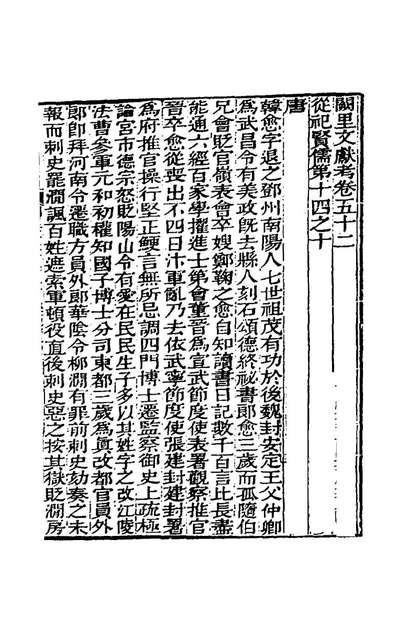 闕里文獻考卷五十二
從祀賢儒第十四之十
唐
韓愈字退之鄧州南陽人七世祖茂有功於後魏封安定王父仲卿
為武昌令有美政既去縣人刻石頌德終祕書郎愈三歲而孤隨伯
兄會貶官嶺表會卒嫂鄭鞠之愈自知讀書日記數千百言比長盡
能通六經百家學擢進士第會董晉為宣武節度使表署觀察推官
晉卒愈從喪出不四日汴軍亂乃去依武寧節度使張建封建封署
為府推官操行堅正鯁言無所忌調四門博士遷監察御史上疏極
論宮市德宗怒貶陽山令有愛在民民生子多以其姓字之改江陵
法曹參軍元和初權知國子博士分司東都三歲為真改都官員外
郎即拜河南令遷職方員外郎華陰令柳澗有罪前刺史劾奏之未
報而刺史罷澗諷百姓遮索軍頓役直後刺史惡之按其獄貶澗房